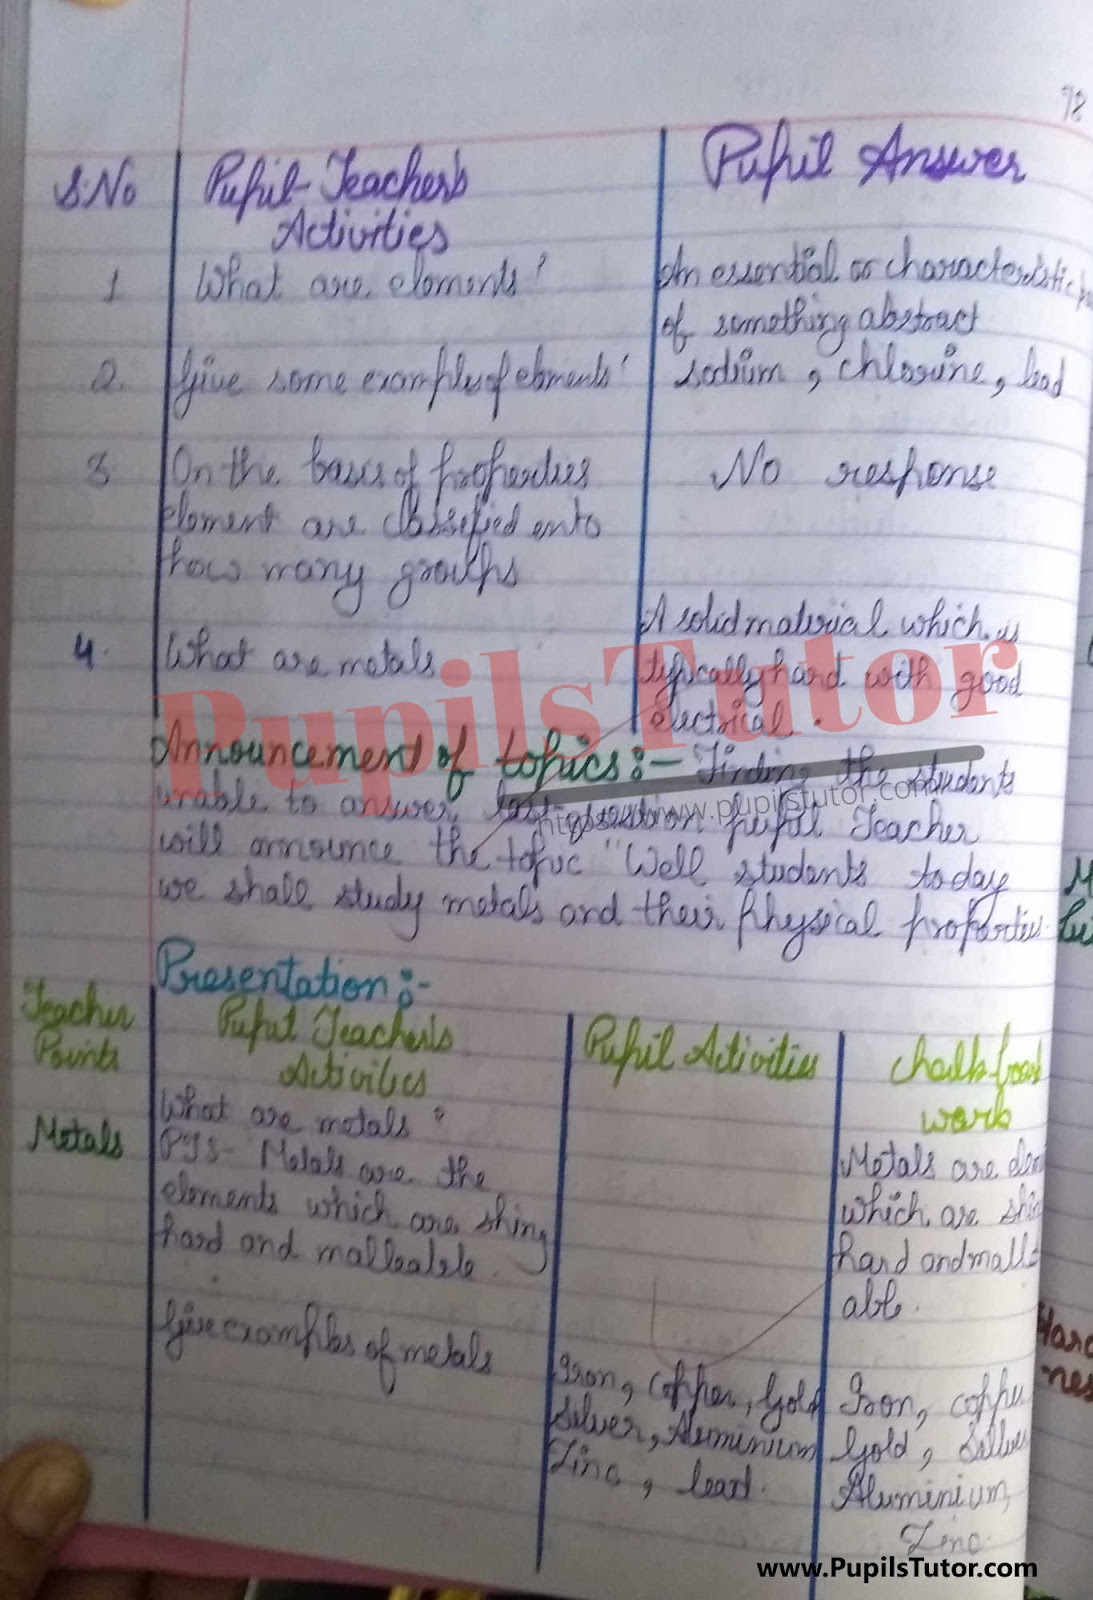 78
S.No
Pupil-Teacher's
Activities
Pupil Answer
1
What are elements?
An essential or characteristic
of something abstract
2.
Give some examples of elements?
sodium, chlorine, lead
3.
On the basis of properties
element are classified into
how many groups
No response
4.
What are metals
A solid material which is
typically hard with good
electrical.
PupilsTutor
Announcement of topics:- Finding the students
unable to answer last question pupil Teacher
will announce the topic "Well students today
we shall study metals and their physical
https://www.pupilstutor.com
Presentation:-
Teacher
Points
Pupil Teacher's
Activities
Pupil Activities
work
Metals
What are metals?
PTS- Metals are the
elements which are shiny
hard and malleable.
Metals are
which are
hard and
able.
Give examples of metals
Iron, copper, Gold
Silver, Aluminium
Zinc, lead.
Iron,
Gold,
Aluminium,
Zinc.
Hard
nes
www.PupilsTutor.com